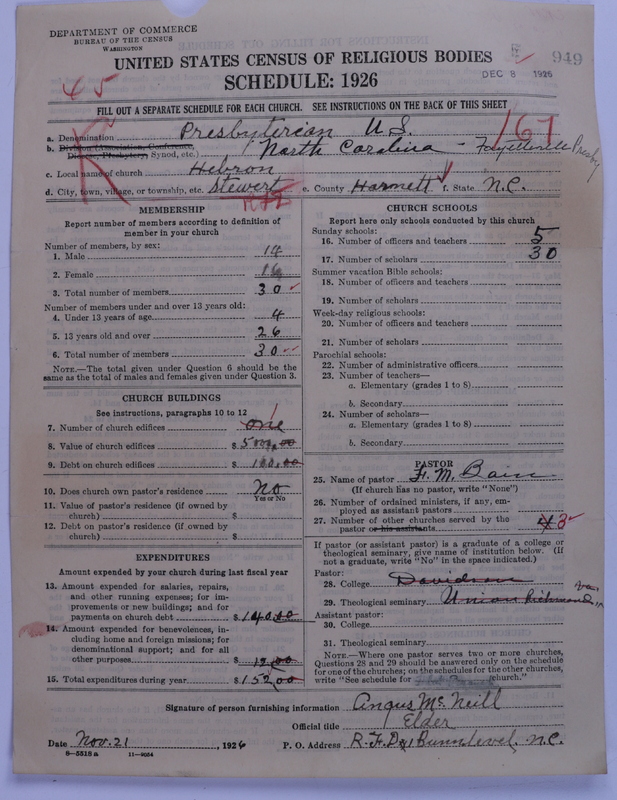 DEPARTMENT OF COMMERCE
BUREAU OF THE CENSUS
WASHINGTON
UNITED STATES CENSUS OF RELIGIOUS BODIES
SCHEDULE: 1926
DEC 8 1926
949
45
FILL OUT A SEPARATE SCHEDULE FOR EACH CHURCH. SEE INSTRUCTIONS ON THE BACK OF THIS SHEET
167
a. Denomination Presbyterian U.S.
b. Division (Association, Conference, Diocese, Presbytery, Synod, etc.) North Carolina - Fayetteville Presby
c. Local name of church Hebron
d. City, town, village, or township, etc. Stewart e. County Harnett f. State N.C.
MEMBERSHIP
Report number of members according to definition of
member in your church
Number of members, by sex:
1. Male 14
2. Female 16
3. Total number of members 30
Number of members under and over 13 years old:
4. Under 13 years of age 4
5. 13 years old and over 26
6. Total number of members 30
NOTE.—The total given under Question 6 should be the
same as the total of males and females given under Question 3.
CHURCH BUILDINGS
See instructions, paragraphs 10 to 12
7. Number of church edifices one
8. Value of church edifices $ 5000.00
9. Debt on church edifices $ 100.00
10. Does church own pastor's residence No
Yes or No
11. Value of pastor's residence (if owned by
church) $
12. Debt on pastor's residence (if owned by
church) $
EXPENDITURES
Amount expended by your church during last fiscal year
13. Amount expended for salaries, repairs,
and other running expenses; for im-
provements or new buildings; and for
payments on church debt $ 140.00
14. Amount expended for benevolences, in-
cluding home and foreign missions; for
denominational support; and for all
other purposes $ 12.00
15. Total expenditures during year $ 152.00
CHURCH SCHOOLS
Report here only schools conducted by this church
Sunday schools:
16. Number of officers and teachers 5
17. Number of scholars 30
Summer vacation Bible schools:
18. Number of officers and teachers
19. Number of scholars
Week-day religious schools:
20. Number of officers and teachers
21. Number of scholars
Parochial schools:
22. Number of administrative officers
23. Number of teachers—
a. Elementary (grades 1 to 8)
b. Secondary
24. Number of scholars—
a. Elementary (grades 1 to 8)
b. Secondary
PASTOR
25. Name of pastor F. M. Bain
(If church has no pastor, write "None")
26. Number of ordained ministers, if any, em-
ployed as assistant pastors
27. Number of other churches served by the
pastor or his assistants 4 3
If pastor (or assistant pastor) is a graduate of a college or
theological seminary, give name of institution below. (If
not a graduate, write "No" in the space indicated.)
Pastor:
28. College Davidson
29. Theological seminary Union Richmond, Va.
Assistant pastor:
30. College
31. Theological seminary
NOTE.—Where one pastor serves two or more churches,
Questions 28 and 29 should be answered only on the schedule
for one of the churches; on the schedules for the other churches,
write "See schedule for church."
Signature of person furnishing information Angus McNeill
Official title Elder
Date Nov. 21, 1926 P. O. Address R.F.D. #1 Bunnlevel, N.C.
8—5518a 11—9054